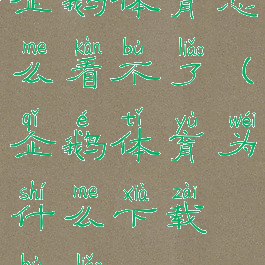 企鹅体育怎
me kàn bú liǎo
么看不了（
qǐ é tǐ yù wéi
企鹅体育为
shí me xià zài
什么下载